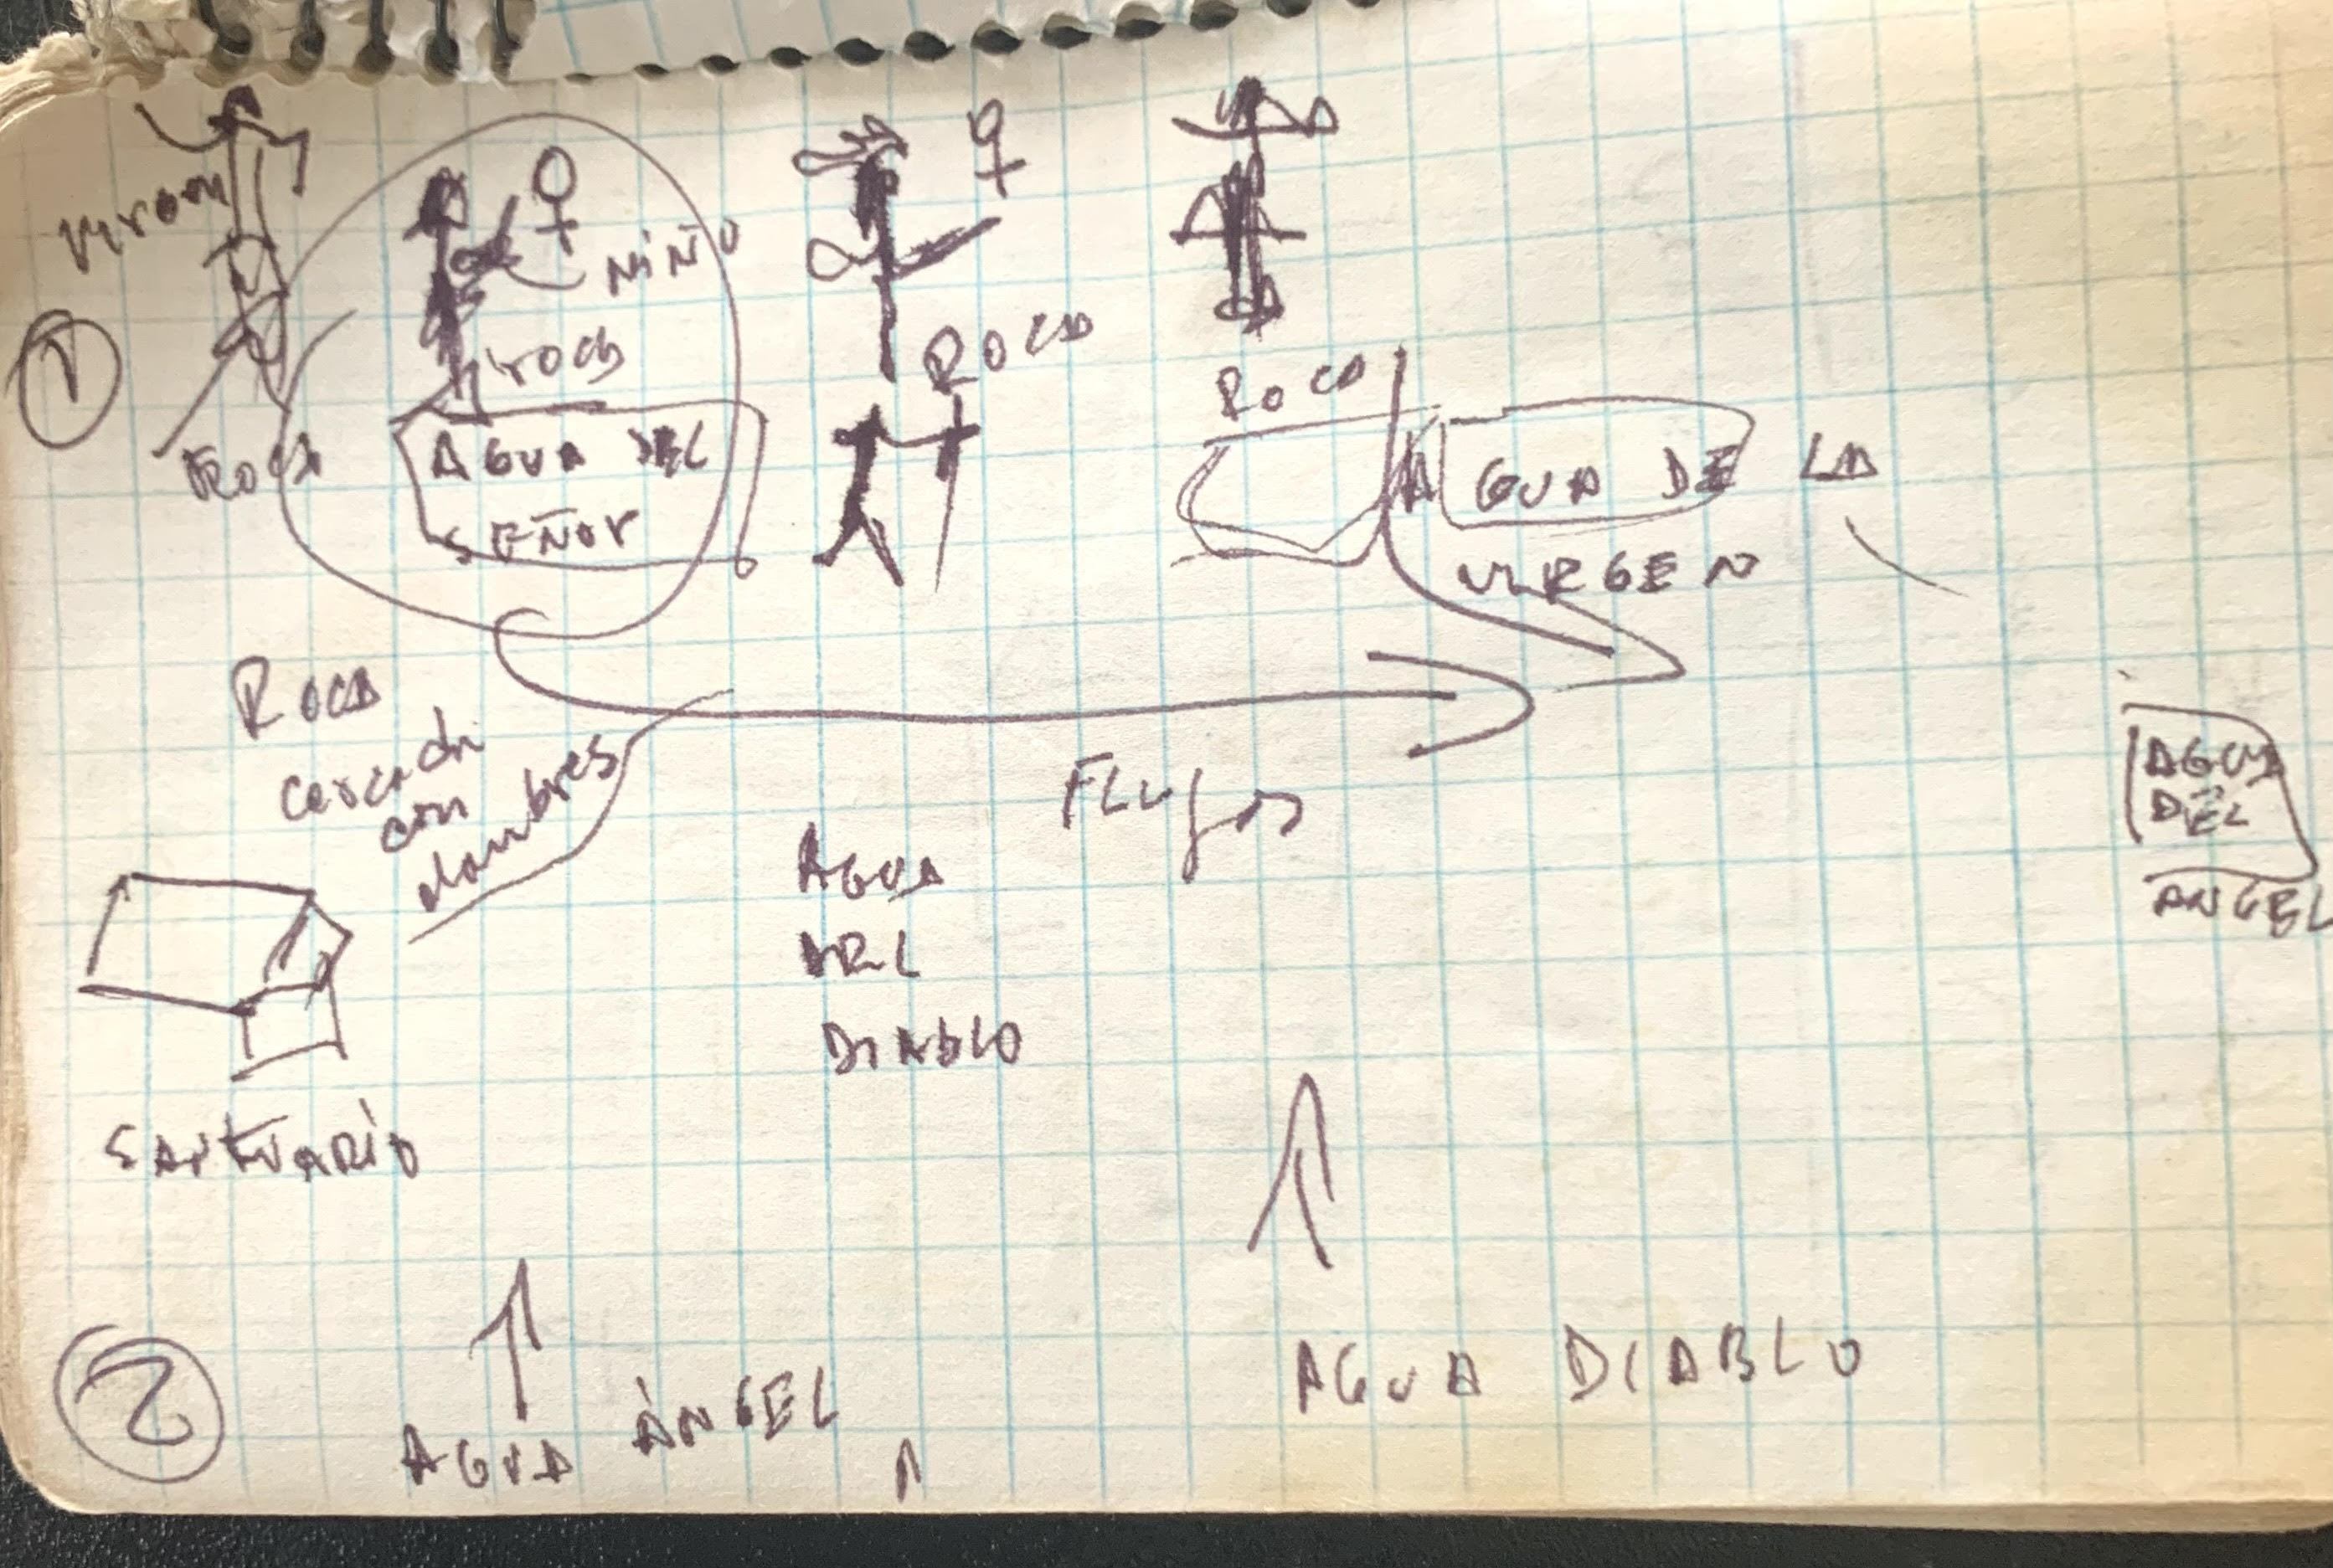 ①
♀
NIÑO
roca
ROCA
AGUA DEL
SEÑOR
♀
ROCA
ROCA
AGUA DE LA
VIRGEN
ROCA
cercada
con
alambres
SANTUARIO
FLUJOS
AGUA
DEL
DIABLO
AGUA
DEL
ANGEL
②
AGUA ÁNGEL
AGUA DIABLO